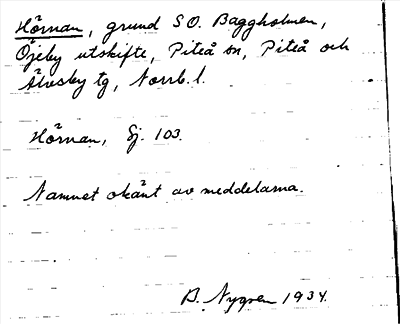 Hörnan, grund S O. Baggholmen,
Öjeby utskifte, Piteå sn, Piteå och
Älvsby tg, Norrb. l.
Hörnan, Sj. 103.
Namnet okänt av meddelarna.
B. Nygren 1934.